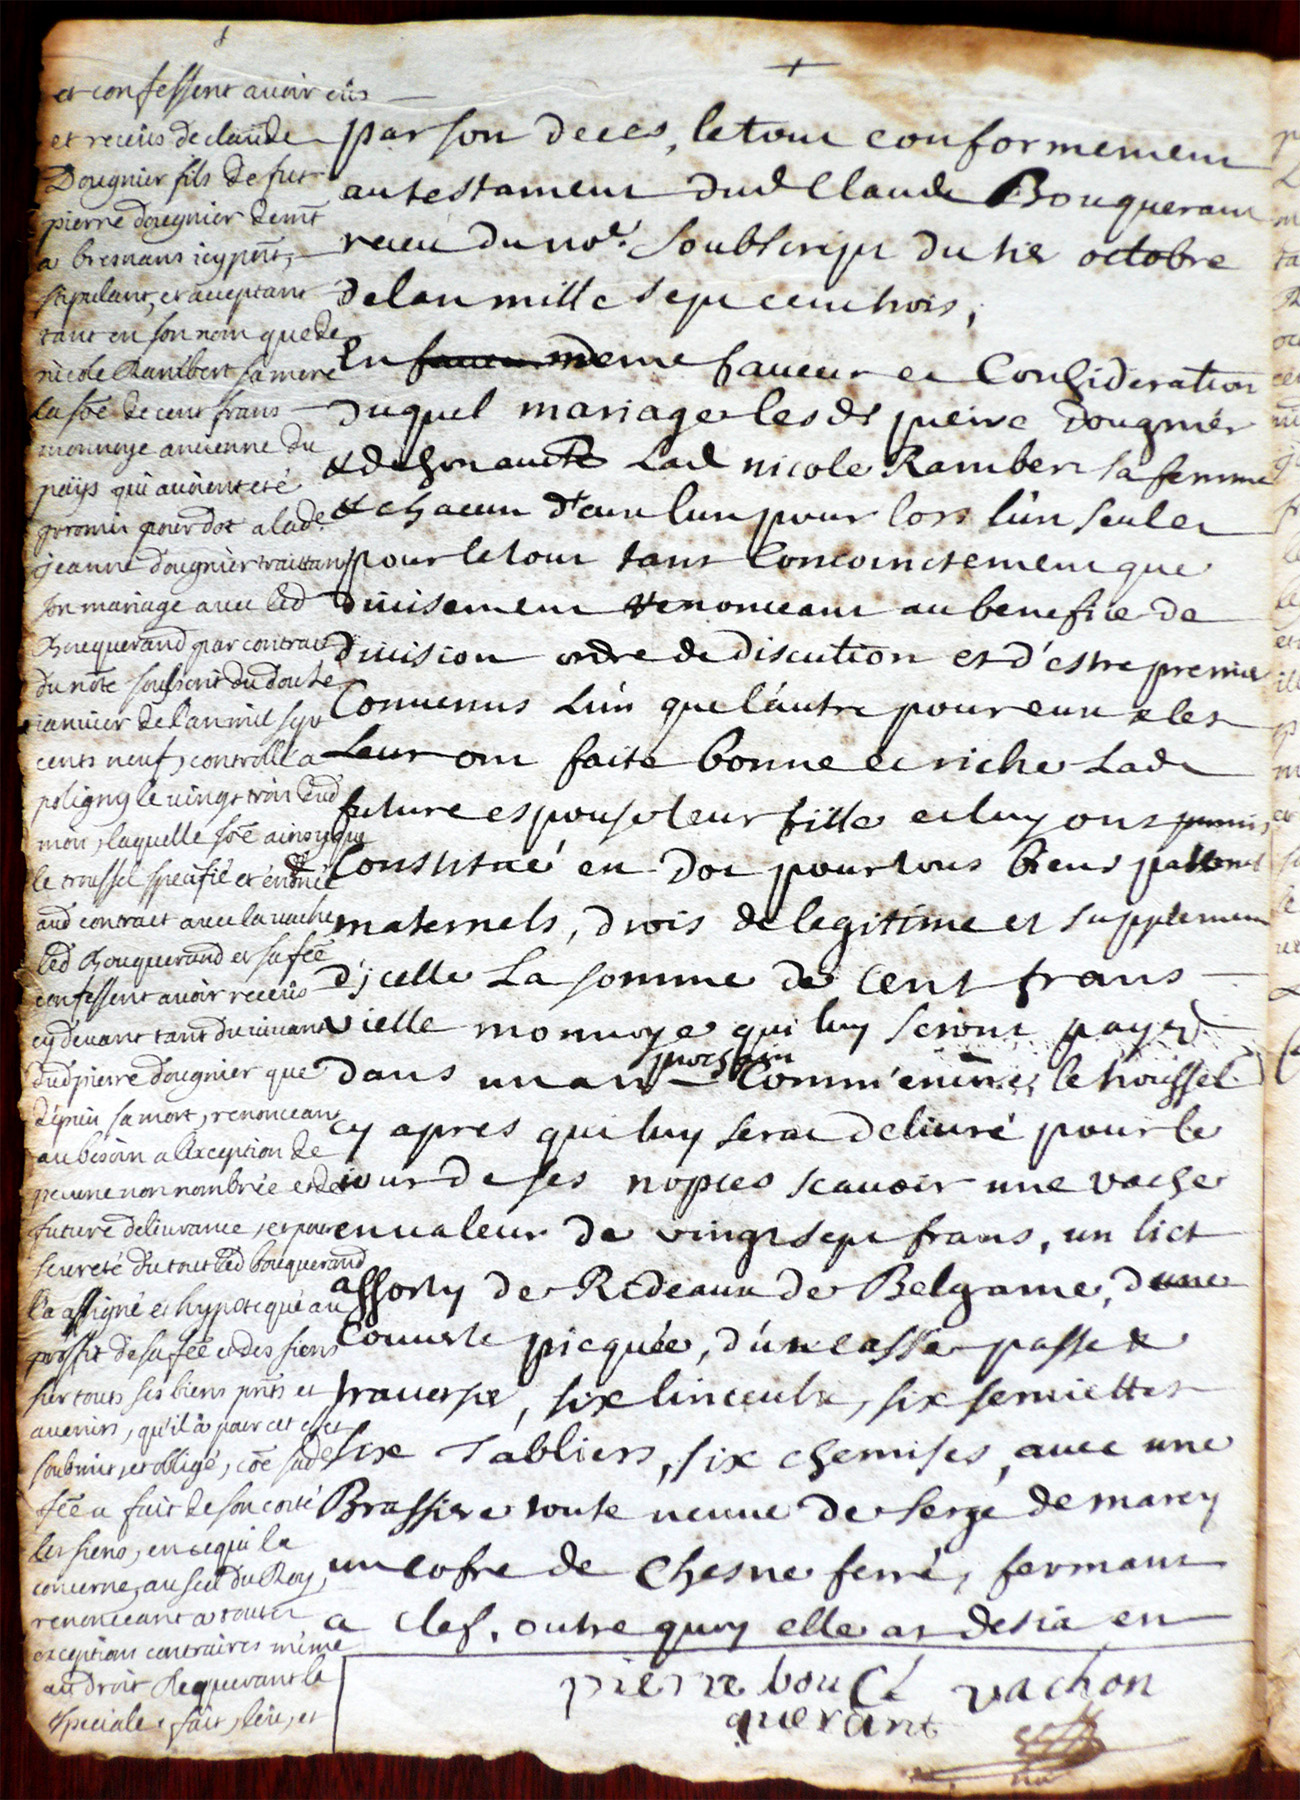 et confessent avoir eüs
et receüs de claude
Dougnier fils de fut
pierre dougnier demt
a bresnans icy pnt,
stipulant, et acceptant
tant en son nom que de
nicole Rambert sa mere
la soe de cent frans
monnoye ancienne du
païis qui avoient eté
promis pour dot a lade
jeanne dougnier traittant
son mariage avec led
Bouquerand par contract
du note soubscrit du douze
ianvier de l'an mil sept
cents neuf, controllé a
poligny le vingt trois dud
mois, laquelle soe ainsy que
le troussel speifié et énoncé
aud contract avec la vache
led Bouquerand et sa fée
confessent avoir receüs
cy devant tant du vivant
dud pierre dougnier que
depuis sa mort, renonceant
au besoin a l'exception de
pecune non nombrée et de
future delivrance, et pour
seureté du tout led bouquerand
l'a assigné et hypotequé au
proffit de sa fée et des siens
sur touts ses biens pnts et
avenirs, qu'il a pour cet effet
soubmis, et obligé, coe sade
fée a fait de son costé
les siens, en ce qui la
concerne, au scel du Roy,
renonceant a toutes
exceptions contraires même
au droit Requerant le
speciale, fait, leu, et
par son deces, le tout conformement
au testament dud Claude Bouquerant
receu du noe. soubscript du tier octobre
de lan mille sept cent trois,
En meme faveur et Consideration
duquel mariage les ds pierre Dougnier
& de son autte Lad nicole Rambert sa femme
& chacun d'eux lun pour lors l'un seul et
pour le tout tant Conjoinctement que
divisement Renonceant au benefice de
division ordre de discution et d'estre premier
Convenus L'un que l'autre pour eux & les
Leur ont faite bonne et riche Lad
future espouse leur fille et luy ont promis,
Constitué en dot pour tous biens paternels
maternels, drois de legitime et supplement
d'jcelle La somme de cent frans
vielle monnoye qui luy seront payez
dans un an prochain Comm'encant, le troussel
cy apres qui luy serat delivré pour le
jour de ses nopces scavoir une vache
en valeur de vingt sept frans, un lict
assorty de Rideaux de Belgame, d'une
Couverte picquée, d'une casse passe &
traverse, six linceulx, six serviettes
six Tabliers, six chemises, avec une
Brassire toute neuve de serge de marcy
un cofre de chesne ferré, fermant
a clef, outre quoy elle at desia en
pierre bouc
querant
vachon